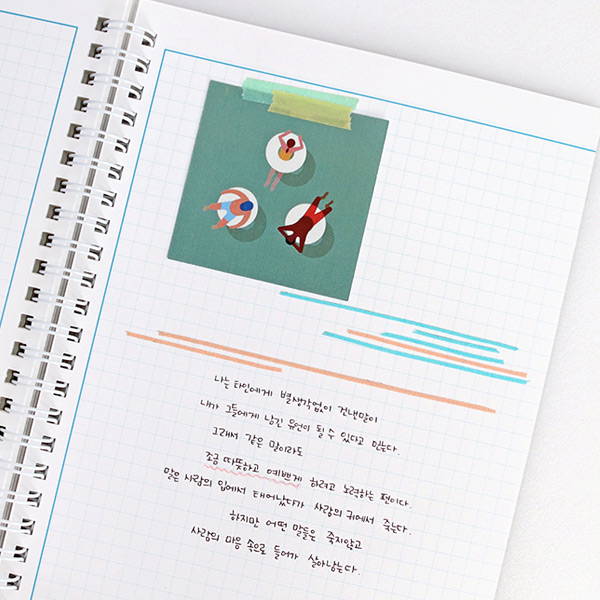 나는 타인에게 별생각없이 건낸말이
내가 그들에게 남긴 유언이 될 수 있다고 믿는다.
그래서 같은 말이라도
조금 따뜻하고 예쁘게 하려고 노력하는 편이다.
말은 사람의 입에서 태어났다가 사람의 귀에서 죽는다.
하지만 어떤 말들은 죽지않고
사람의 마음 속으로 들어가 살아남는다.